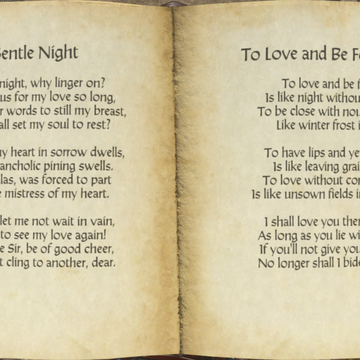 Gentle Night
night, why linger on?
us for my love so long,
words to still my breast,
all set my soul to rest?
heart in sorrow dwells,
ancholic pining swells.
las, was forced to part
mistress of my heart.
let me not wait in vain,
to see my love again!
Sir, be of good cheer,
t cling to another, dear.
To Love and Be F
To love and be f
Is like night withou
To be close with nou
Like winter frost i
To have lips and ye
Is like leaving grai
To love without con
Is like unsown fields i
I shall love you ther
As long as you lie wi
If you'll not give you
No longer shall I bide